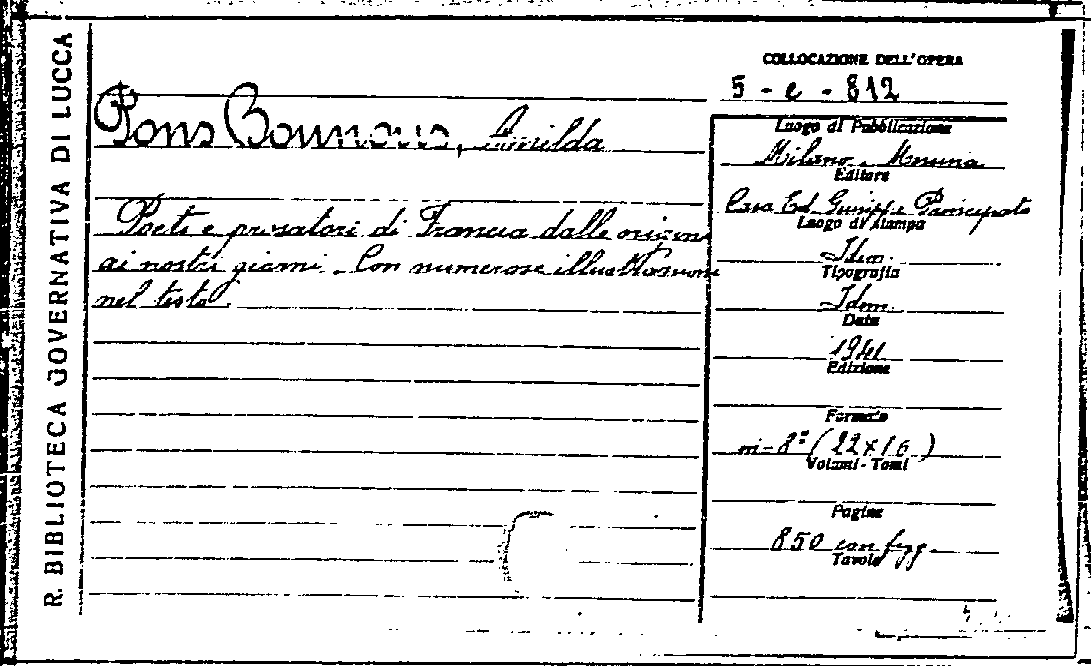 R. BIBLIOTECA GOVERNATIVA DI LUCCA
COLLOCAZIONE DELL'OPERA
5 - e - 812
Pons Bounous, Emilda
Poeti e prosatori di Francia dalle origini
ai nostri giorni. Con numerose illustrazioni
nel testo.
Luogo di Pubblicazione
Milano - Messina
Editore
Casa Ed. Giuseppe Principato
Luogo di Stampa
Idem
Tipografia
Idem
Data
1941
Edizione
Formato
in-8° (22x16)
Volumi - Tomi
Pagine
850 con figg.
Tavole